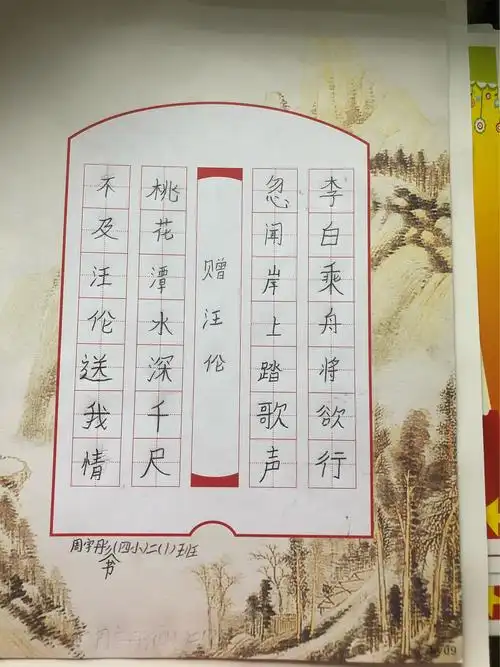 李白乘舟将欲行
忽闻岸上踏歌声
赠汪伦
桃花潭水深千尺
不及汪伦送我情
周宇彤(四小)二(1)班
书